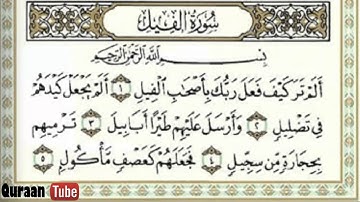 سُورَةُ الْفِيلِ
بِسْمِ اللَّهِ الرَّحْمَٰنِ الرَّحِيمِ
أَلَمْ تَرَ كَيْفَ فَعَلَ رَبُّكَ بِأَصْحَٰبِ الْفِيلِ ١ أَلَمْ يَجْعَلْ كَيْدَهُمْ
فِي تَضْلِيلٍ ٢ وَأَرْسَلَ عَلَيْهِمْ طَيْرًا أَبَابِيلَ ٣ تَرْمِيهِم
بِحِجَارَةٍ مِّن سِجِّيلٍ ٤ فَجَعَلَهُمْ كَعَصْفٍ مَّأْكُولٍ ٥
Quraan Tube